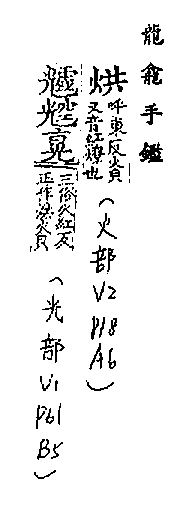 龍龕手鑑
烘呼東反火皃又音紅燎也
(火部
V2
P18
A6)
三俗火紅反正作烘火皃
(光部
V1
P61
B5)